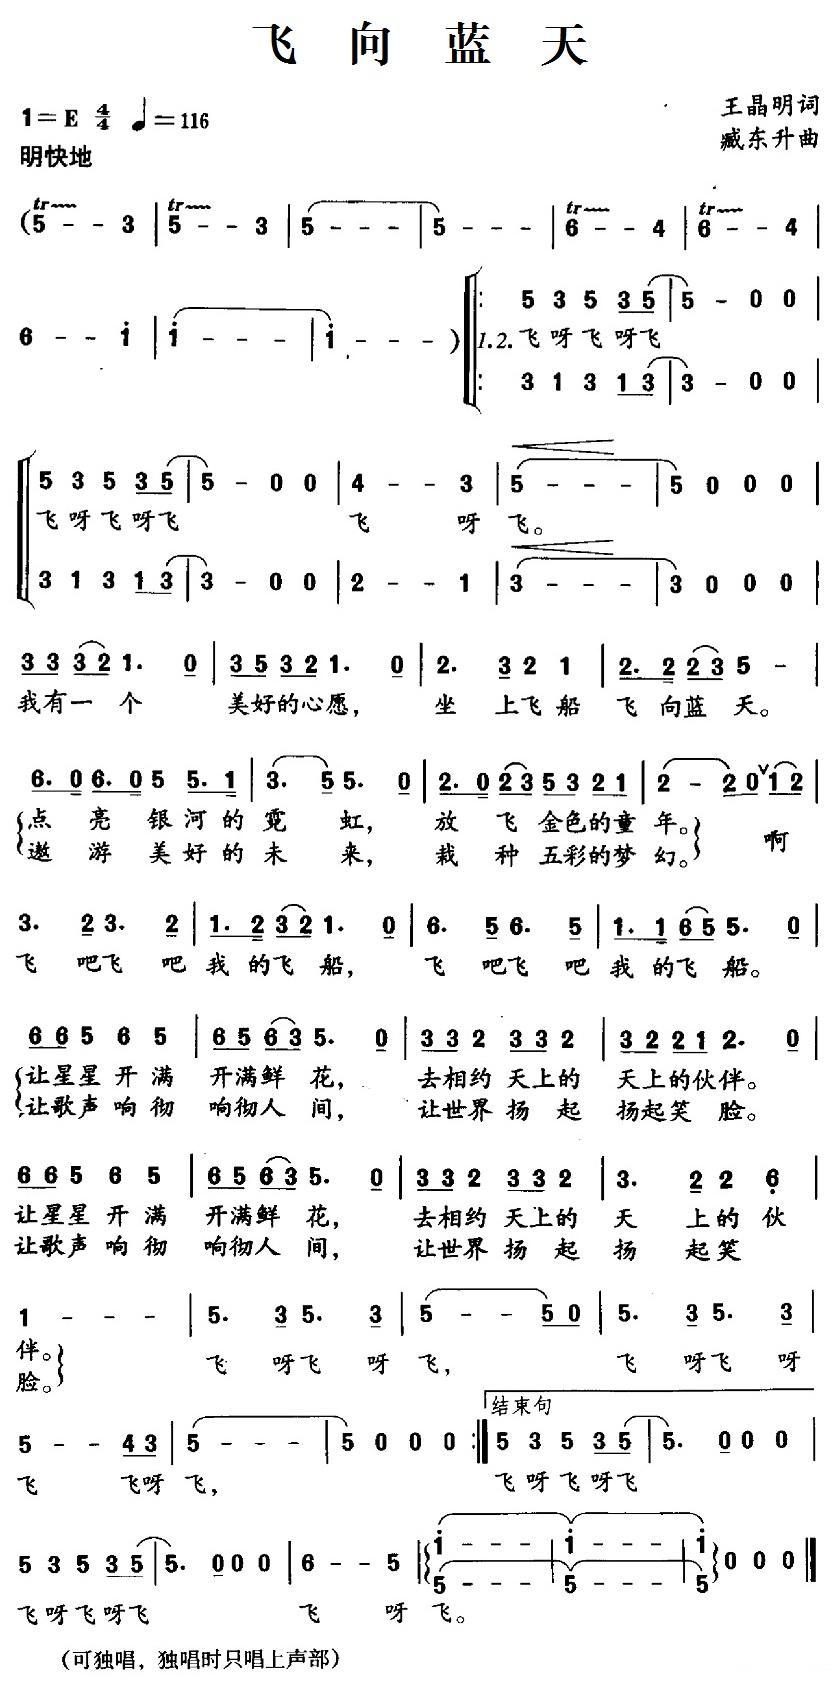 飞 向 蓝 天
1=E 4/4 ♩=116
王晶明词
臧东升曲
明快地
(5 - - 3 | 5 - - 3 | 5 - - - | 5 - - - | 6 - - 4 | 6 - - 4 |
tr tr tr tr
6 - - 1 | 1 - - - | 1 - - - ) 5 3 5 3 5 | 5 - 0 0 |
1.2. 飞 呀 飞 呀 飞
3 1 3 1 3 | 3 - 0 0 |
5 3 5 3 5 | 5 - 0 0 | 4 - - 3 | 5 - - - | 5 0 0 0 |
飞 呀 飞 呀 飞 飞 呀 飞。
3 1 3 1 3 | 3 - 0 0 | 2 - - 1 | 3 - - - | 3 0 0 0 |
3 3 3 2 1. 0 | 3 5 3 2 1. 0 | 2. 3 2 1 | 2. 2 2 3 5 - |
我有一 个 美好的心愿, 坐 上飞 船 飞 向蓝 天。
6. 0 6. 0 5 5. 1 | 3. 5 5. 0 | 2. 0 2 3 5 3 2 1 | 2 - 2 0 1 2 |
点 亮 银 河 的 霓 虹, 放 飞 金色的童 年。 啊
遨 游 美 好 的 未 来, 栽 种 五彩的梦 幻。
3. 2 3. 2 | 1. 2 3 2 1. 0 | 6. 5 6. 5 | 1. 1 6 5 5. 0 |
飞 吧飞 吧 我 的飞 船, 飞 吧飞 吧 我 的飞 船。
6 6 5 6 5 | 6 5 6 3 5. 0 | 3 3 2 3 3 2 | 3 2 2 1 2. 0 |
让星星 开 满 开满鲜 花, 去相约 天上的 天上的伙伴。
让歌声 响 彻 响彻人 间, 让世界 扬 起 扬起笑 脸。
6 6 5 6 5 | 6 5 6 3 5. 0 | 3 3 2 3 3 2 | 3. 2 2 6
让星星 开 满 开满鲜 花, 去相约 天上的 天 上的 伙
让歌声 响 彻 响彻人 间, 让世界 扬 起 扬 起笑
1 - - - | 5. 3 5. 3 | 5 - - 5 0 | 5. 3 5. 3 |
伴。 飞 呀飞 呀 飞, 飞 呀飞 呀
脸。
结束句
5 - - 4 3 | 5 - - - | 5 0 0 0 :| 5 3 5 3 5 | 5. 0 0 0 |
飞 飞呀 飞, 飞 呀 飞 呀 飞
5 3 5 3 5 | 5. 0 0 0 | 6 - - 5 | 1 - - - | 1 - - - | 1 0 0 0 ||
5 - - - 5 - - - 5
飞 呀 飞 呀 飞 飞 呀 飞。
(可独唱, 独唱时只唱上声部)